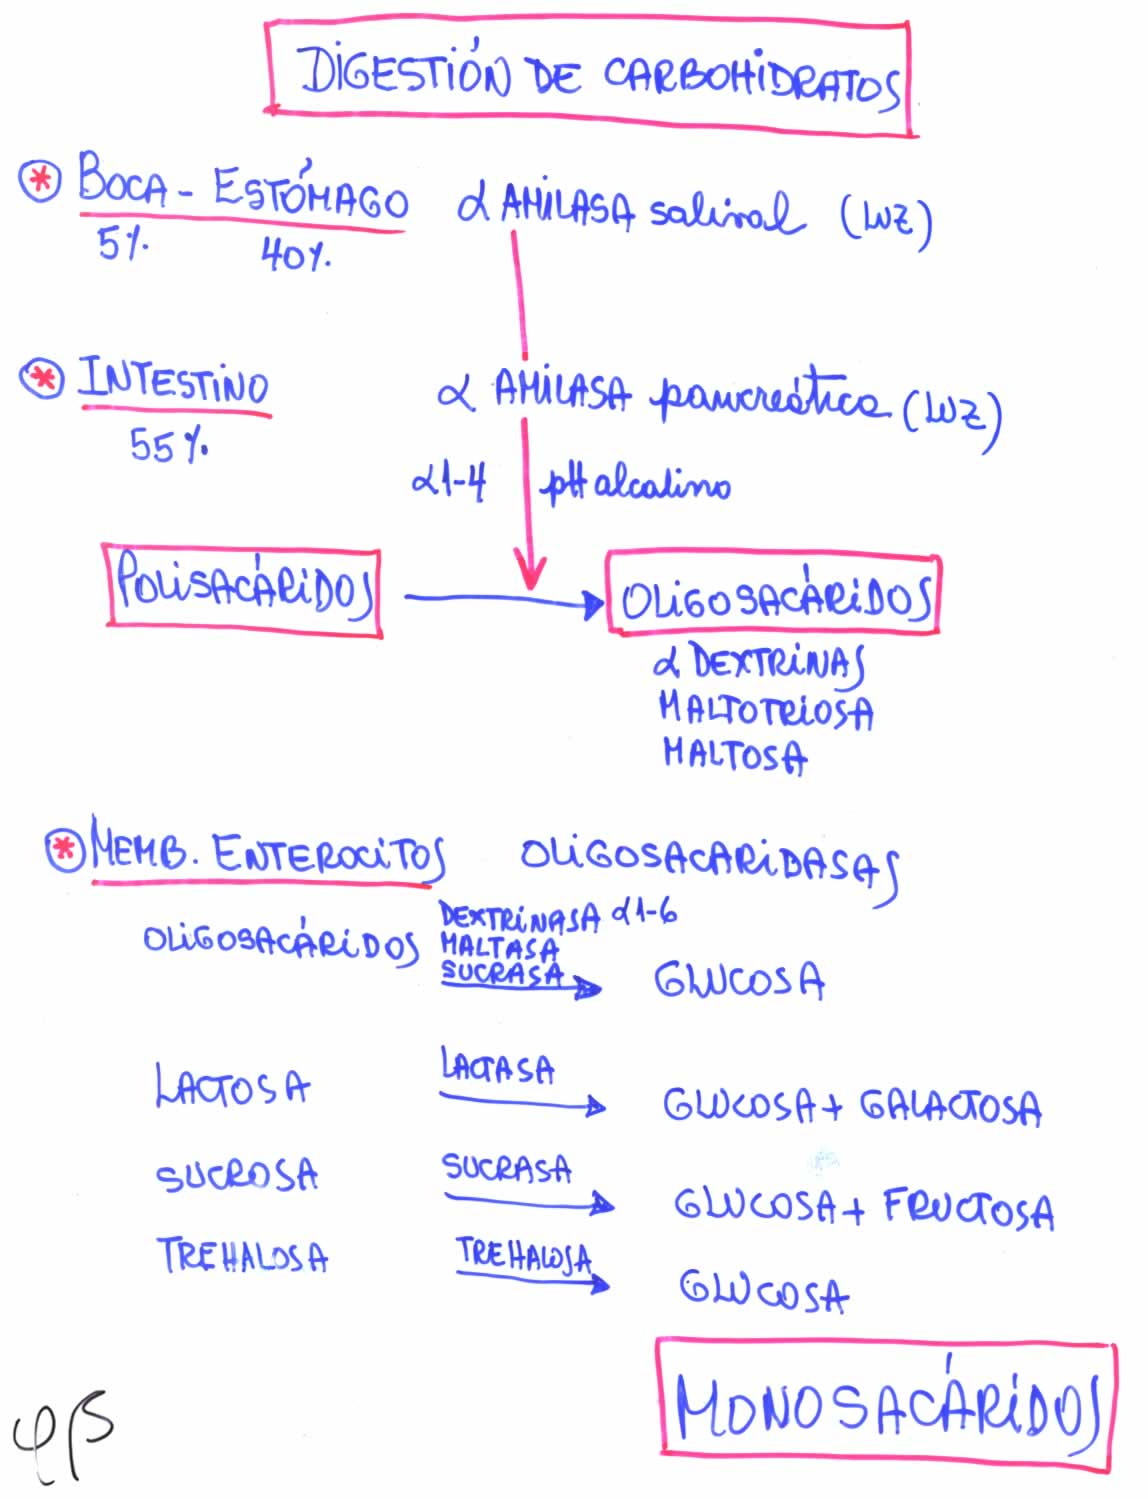 DIGESTIÓN DE CARBOHIDRATOS
* BOCA - ESTÓMAGO α AMILASA salival (LUZ)
5% 40%
* INTESTINO α AMILASA pancreática (LUZ)
55%
α1-4 pH alcalino
POLISACÁRIDOS OLIGOSACÁRIDOS
α DEXTRINAS
MALTOTRIOSA
MALTOSA
* MEMB. ENTEROCITOS OLIGOSACARIDASAS
DEXTRINASA α1-6
OLIGOSACÁRIDOS MALTASA
SUCRASA GLUCOSA
LACTOSA LACTASA GLUCOSA + GALACTOSA
SUCROSA SUCRASA GLUCOSA + FRUCTOSA
TREHALOSA TREHALOSA GLUCOSA
MONOSACÁRIDOS